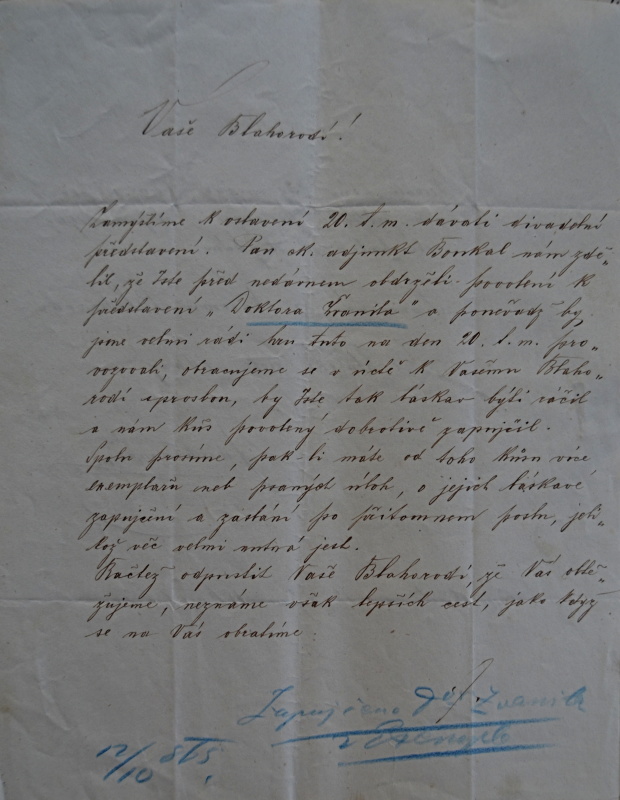 Vaše Blahorodí!
Zamýšlíme k oslavení 20. t. m. dávati divadelní
představení. Pan sk. adjunkt Boukal nám zdě„
lil, že Jste před nedávnem obdrželi povolení k
představení „Doktora Zvanila“ a poněvadž by„
jsme velmi rádi hru tuto na den 20. t. m. pro„
vozovali, obracujeme se v úctě k Vašemu Blaho„
rodí s prosbou, by Jste tak láskav býti ráčil
a nám kus povolený dobrotivě zapůjčil.
Spolu prosíme, pak-li máte od toho kusu více
exemplářů aneb psaných úloh, o jejich láskavé
zapujčení a zaslání po přítomnem poslu, jeli„
kož věc velmi nutná jest.
Račtež odpustit Vaše Blahorodí, že Vás obtě„
žujeme, neznáme však lepších cest, jako když
se na Vás obrátíme.
Zapujčeno Zvanila
12/10